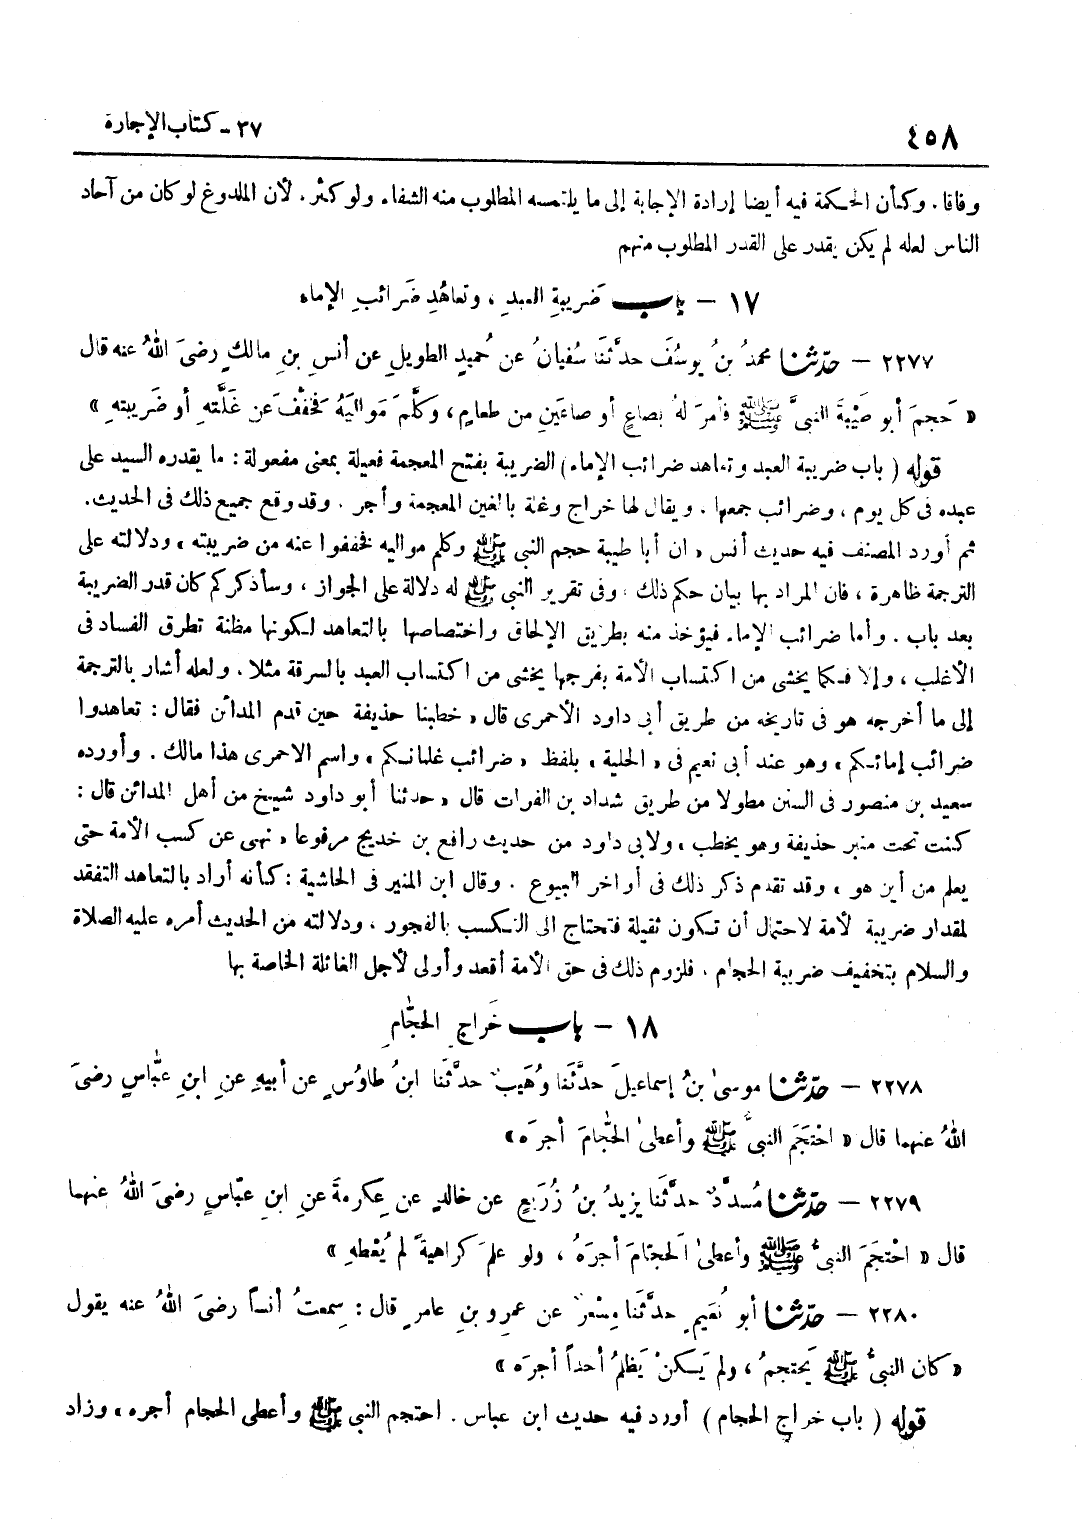 ٤٥٨
٣٧ - كتاب الإجارة
وفاقا. وكأن الحكمة فيه أيضا إرادة الإجابة إلى ما يلتمسه المطلوب منه الشفاء ولو كثر. لأن الملدوغ لو كان من آحاد
الناس لعله لم يكن يقدر على القدر المطلوب منهم
١٧ - باب ضَريبةِ العبدِ ، وتعاهُدِ ضَرائبِ الإماء
٢٢٧٧ - حدّثنا محمدُ بنُ يوسُفَ حدثَنا سُفيانُ عن حُميدٍ الطويلِ عن أنسِ بنِ مالكٍ رضىَ اللهُ عنه قال
« حَجمَ أبو طَيْبةَ النبىَّ ﷺ فأمرَ لهُ بصاعٍ أو صاعَينِ من طعامٍ ، وكلَّمَ مَواليَهُ فخفَّفَ عن غَلَّتهِ أو ضَريبتهِ »
قوله ( باب ضريبة العبد وتعاهد ضرائب الإماء ) الضريبة بفتح المعجمة فعيلة بمعنى مفعولة : ما يقدره السيد على
عبده فى كل يوم ، وضرائب جمعها . ويقال لها خراج وغلة بالغين المعجمة وأجر . وقد وقع جميع ذلك فى الحديث.
ثم أورد المصنف فيه حديث أنس « ان أبا طيبة حجم النبى ﷺ وكلم مواليه فخففوا عنه من ضريبته » ودلالته على
الترجمة ظاهرة ، فان المراد بها بيان حكم ذلك ، وفى تقرير النبى ﷺ له دلالة على الجواز ، وسأذكر كم كان قدر الضريبة
بعد باب . وأما ضرائب الإماء فيؤخذ منه بطريق الإلحاق واختصاصها بالتعاهد لكونها مظنة تطرق الفساد فى
الأغلب ، وإلا فكما يخشى من اكتساب الأمة بفرجها يخشى من اكتساب العبد بالسرقة مثلا . ولعله أشار بالترجمة
إلى ما أخرجه هو فى تاريخه من طريق أبى داود الأحمرى قال « خطبنا حذيفة حين قدم المدائن فقال : تعاهدوا
ضرائب إمائكم » وهو عند أبى نعيم فى « الحلية » بلفظ « ضرائب غلمانكم » واسم الاحمرى هذا مالك . وأورده
سعيد بن منصور فى السنن مطولا من طريق شداد بن الفرات قال « حدثنا أبو داود شيخ من أهل المدائن قال :
كنت تحت منبر حذيفة وهو يخطب » ولابى داود من حديث رافع بن خديج مرفوعا « نهى عن كسب الأمة حتى
يعلم من أين هو » وقد تقدم ذكر ذلك فى أواخر البيوع . وقال ابن المنير فى الحاشية : كأنه أراد بالتعاهد التفقد
لمقدار ضريبة الأمة لاحتمال أن تكون ثقيلة فتحتاج الى التكسب بالفجور ، ودلالته من الحديث أمره عليه الصلاة
والسلام بتخفيف ضريبة الحجام ، فلزوم ذلك فى حق الأمة أقعد وأولى لأجل الغائلة الخاصة بها
١٨ - باب خَراجِ الحجّامِ
٢٢٧٨ - حدّثنا موسىٰ بنُ إسماعيلَ حدَّثَنا وُهَيبٌ حدَّثَنا ابنُ طاوُسٍ عن أبيهِ عنِ ابنِ عبّاسٍ رضىَ
اللهُ عنهما قال « احْتَجَمَ النبىُّ ﷺ وأعطىٰ الحجّامَ أجرَه »
٢٢٧٩ - حدّثنا مُسدَّدٌ حدَّثَنا يزيدُ بنُ زُرَيعٍ عن خالدٍ عن عِكرمةَ عنِ ابنِ عبّاسٍ رضىَ اللهُ عنهما
قال « احْتَجَمَ النبىُّ ﷺ وأعطىٰ الحجّامَ أجرَهُ ، ولو علمَ كراهيةً لم يُعْطهِ »
٢٢٨٠ - حدّثنا أبو نُعَيمٍ حدَّثَنا مِسْعرٌ عن عمرِو بنِ عامرٍ قال : سمعتُ أنساً رضىَ اللهُ عنه يقول
« كان النبىُّ ﷺ يَحتجمُ ، ولم يَكنْ يَظلمُ أحداً أجرَه »
قوله ( باب خراج الحجام ) أورد فيه حديث ابن عباس . احتجم النبى ﷺ وأعطى الحجام أجره » وزاد